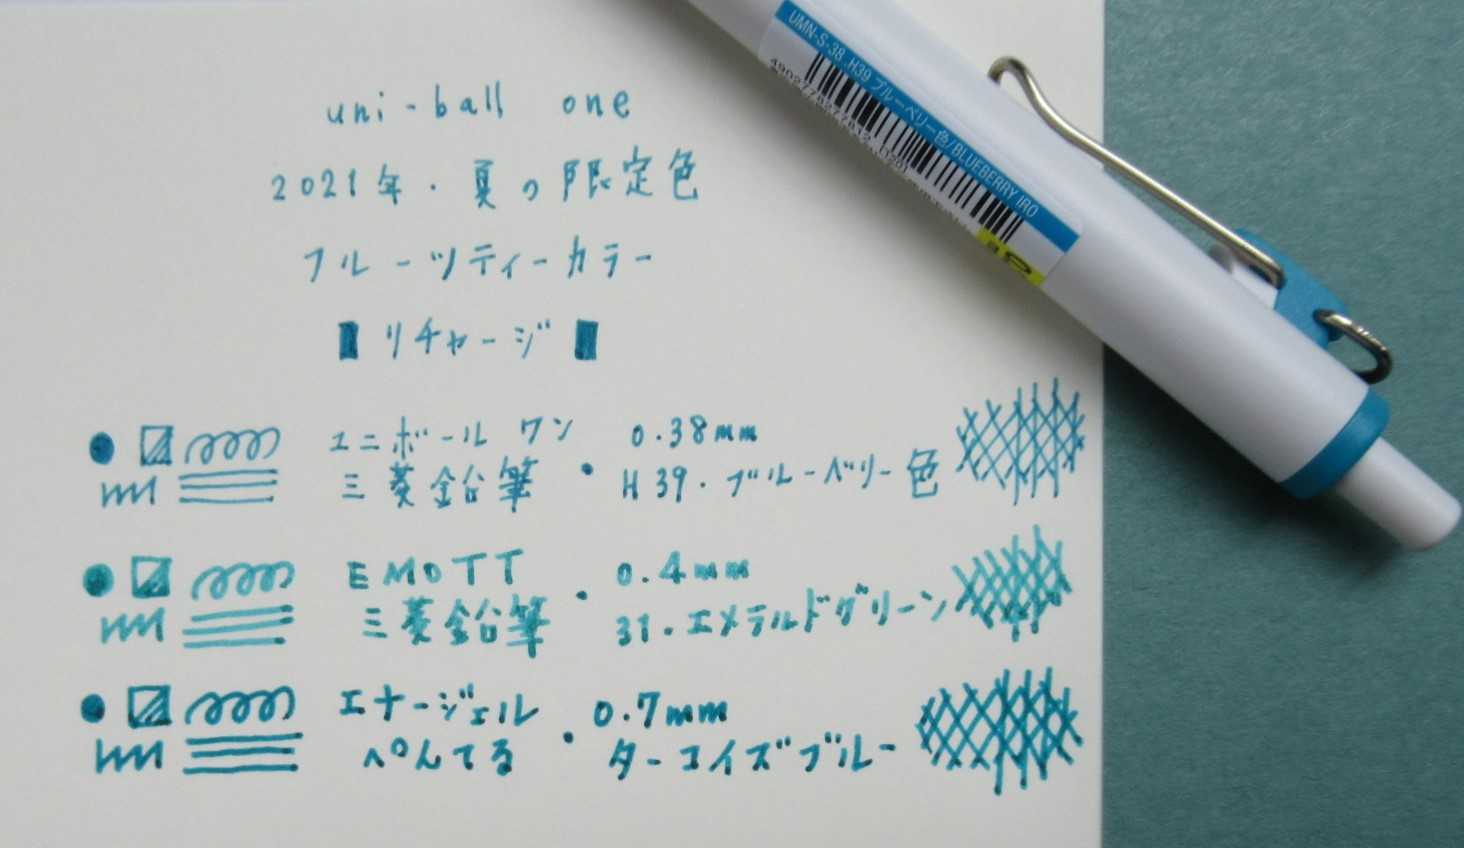 uni-ball one
2021年・夏の限定色
フルーツティーカラー
リチャージ
ユニボールワン
三菱鉛筆
・
0.38mm
H39・ブルーベリー色
EMOTT
三菱鉛筆
・
0.4mm
31.エメラルドグリーン
エナージェル
ぺんてる
・
0.7mm
ターコイズブルー
UMN-S-38 .H39 ブルーベリー色/BLUEBERRY IRO